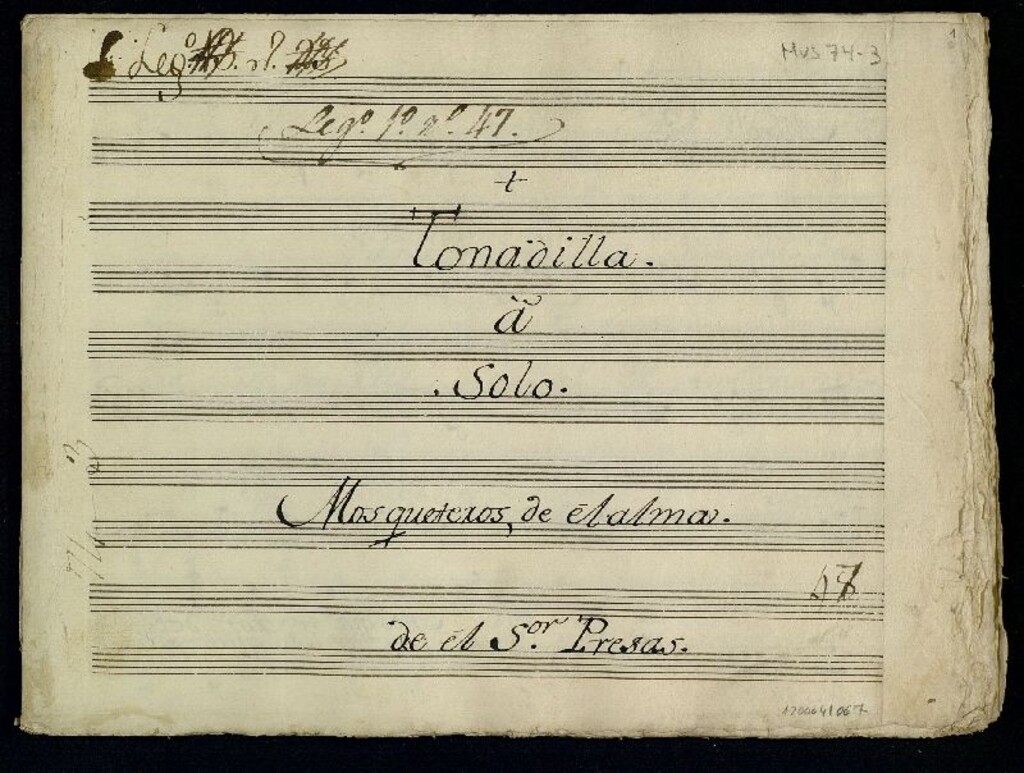 Leg.º nº.
Mus 74-3
1
Leg.º 1.º n.º 47.
Tonadilla.
â
.Solo.
Mosqueteros, de êl alma.
47
de êl S.or Presas.
1200041067